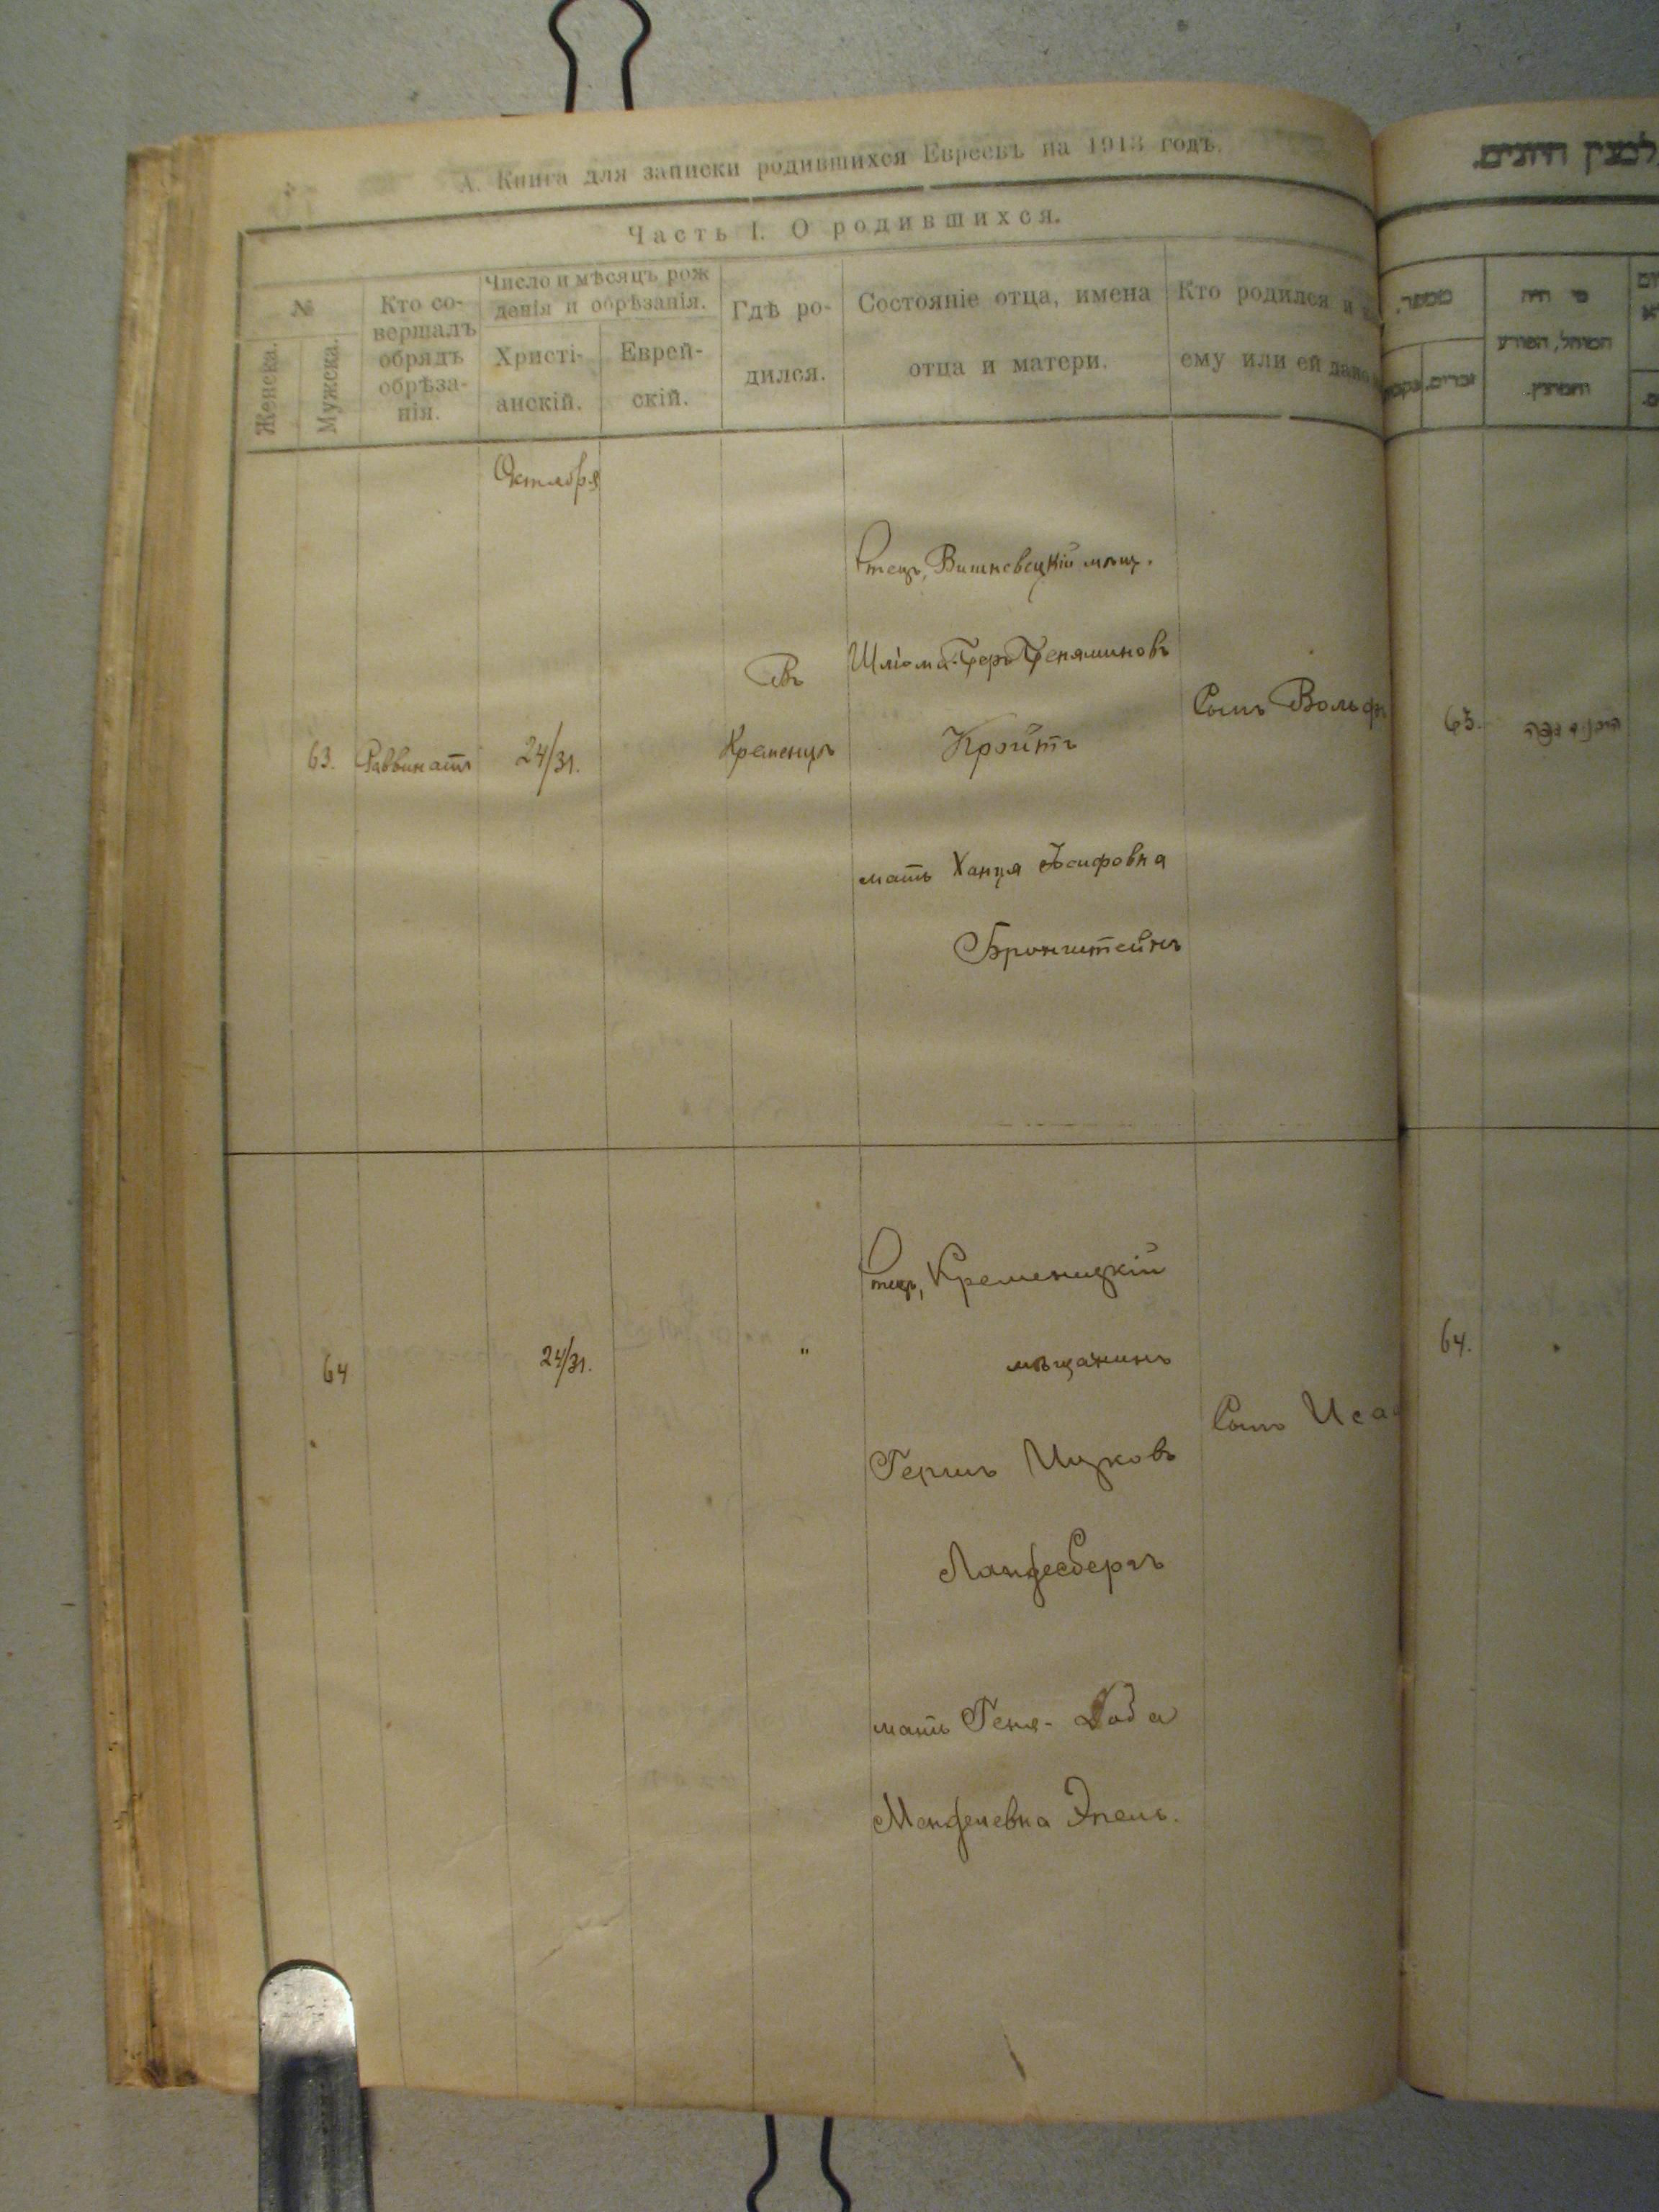 А. Книга для записки родившихся Евреевъ на 1913 годъ.
Часть I. О родившихся.
№
Женска.
Мужска.
Кто со-
вершалъ
обрядъ
обрѣза-
нія.
Число и мѣсяцъ рож
денія и обрѣзанія.
Христі-
анскій.
Еврей-
скій.
Гдѣ ро-
дился.
Состояніе отца, имена
отца и матери.
Кто родился и
ему или ей дано
Октября
63.
Раввинатъ
24/31.
Въ
Кременцѣ
Отецъ, Вишневецкій мѣщ.
Шліома-Беръ Беняминовъ
Кройтъ
мать Ханця Іосифовна
Бронштейнъ
Сынъ Вольфъ
64
24/31.
"
Отецъ, Кременецкій
мѣщанинъ
Гершъ Ицковъ
Ландесбергъ
мать Геня-
Менделевна Эпель.
Сынъ Иса
מספר.
זכרים.
מי היה
המוהל, הפורע
והמוצץ.
63.
64.